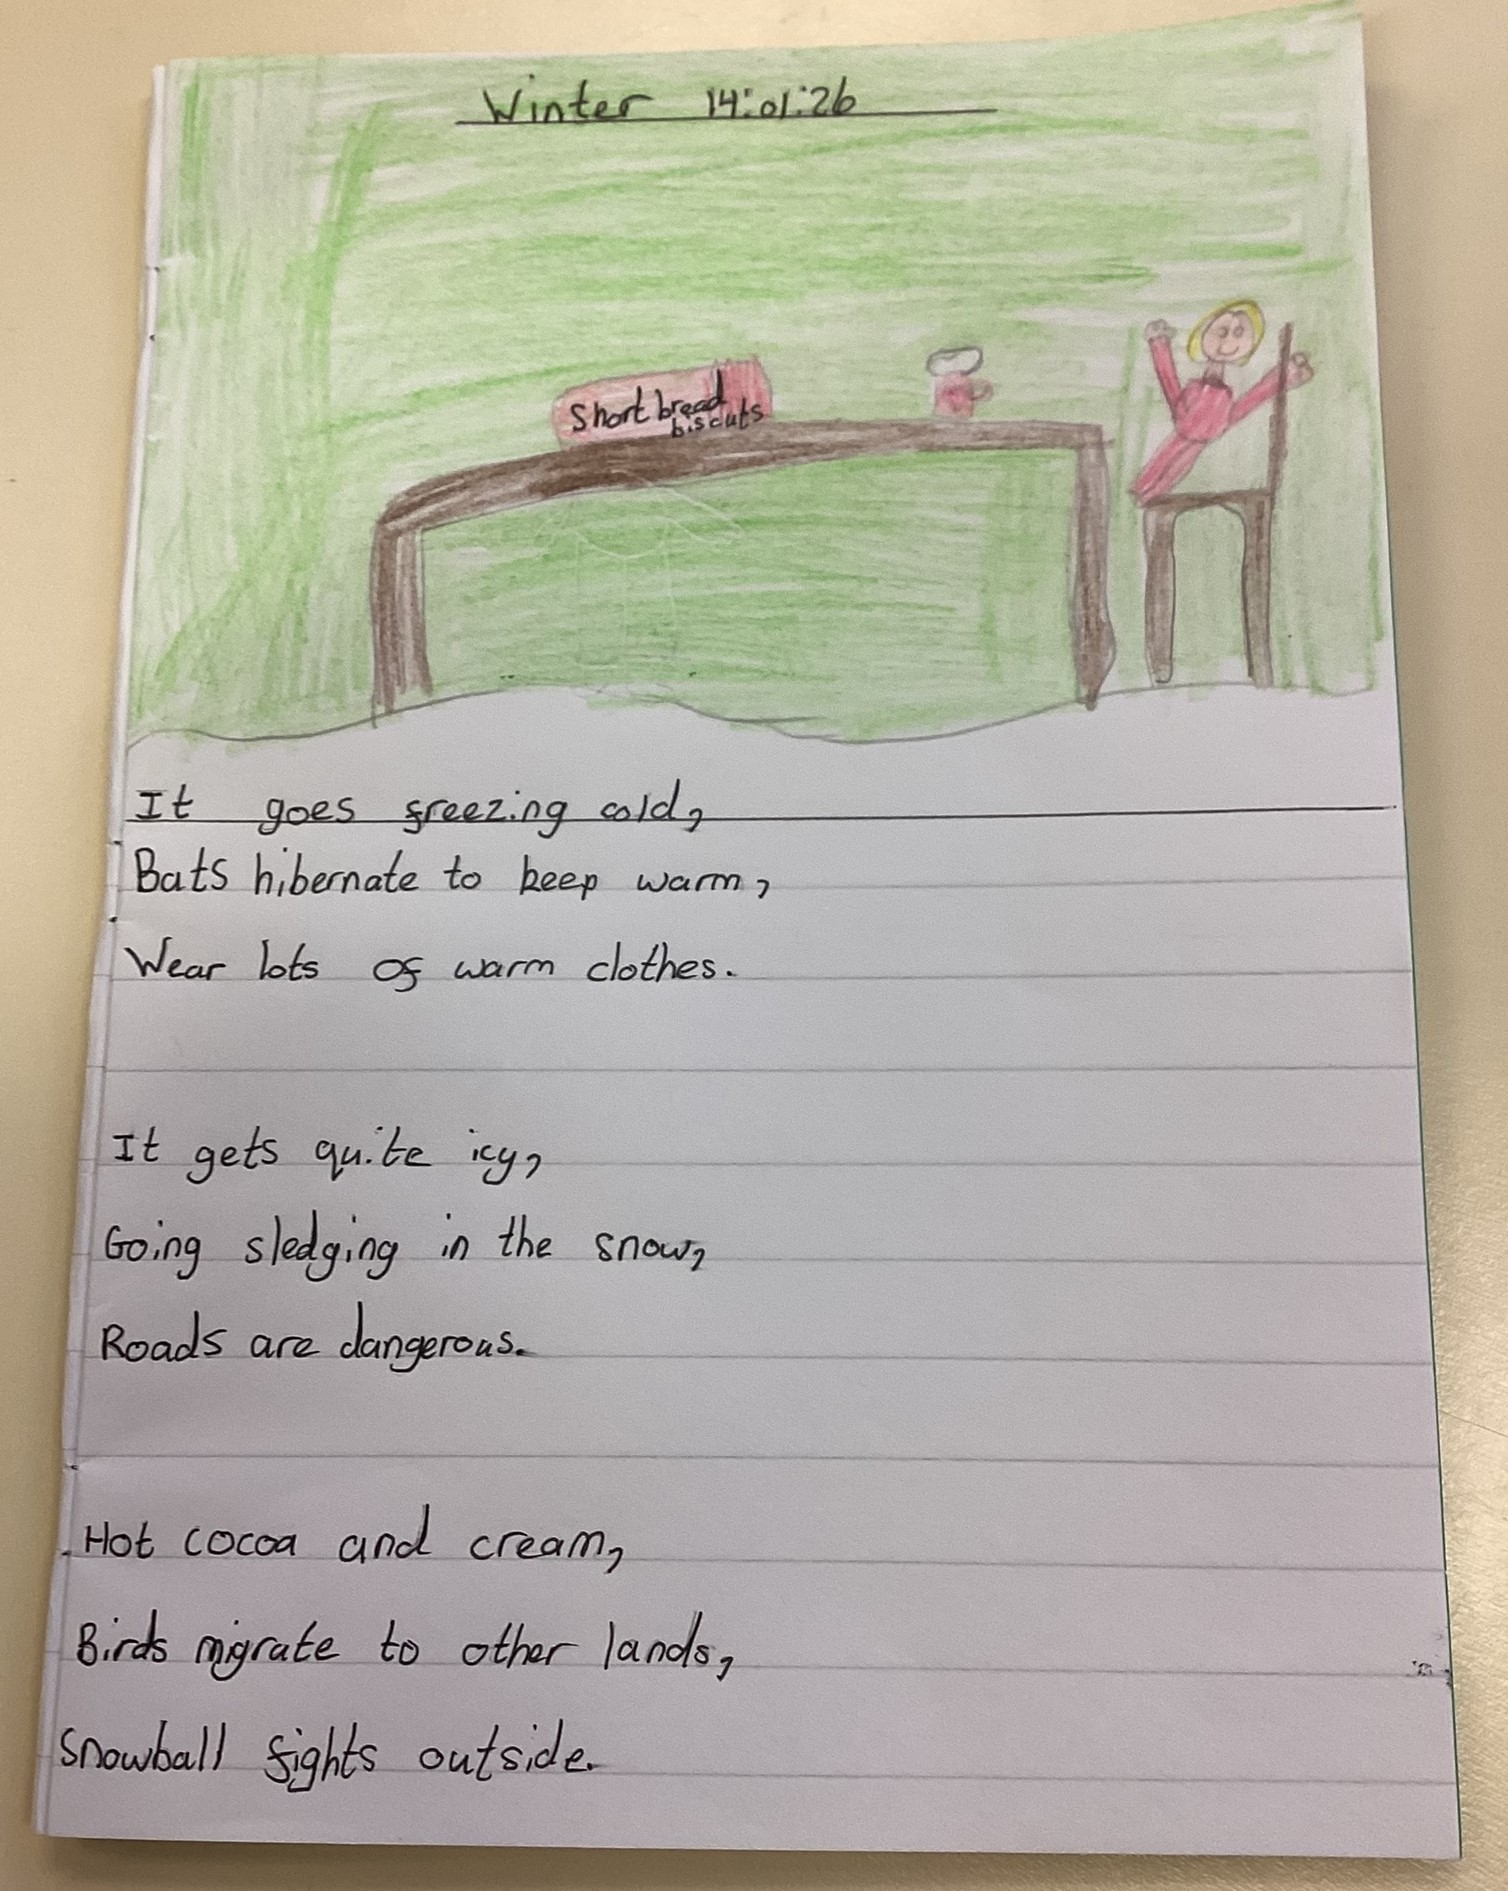 Winter 14:01:26
Short bread
biscuts
It goes freezing cold,
Bats hibernate to keep warm,
Wear lots of warm clothes.
It gets quite icy,
Going sledging in the snow,
Roads are dangerous.
Hot cocoa and cream,
Birds migrate to other lands,
Snowball fights outside.